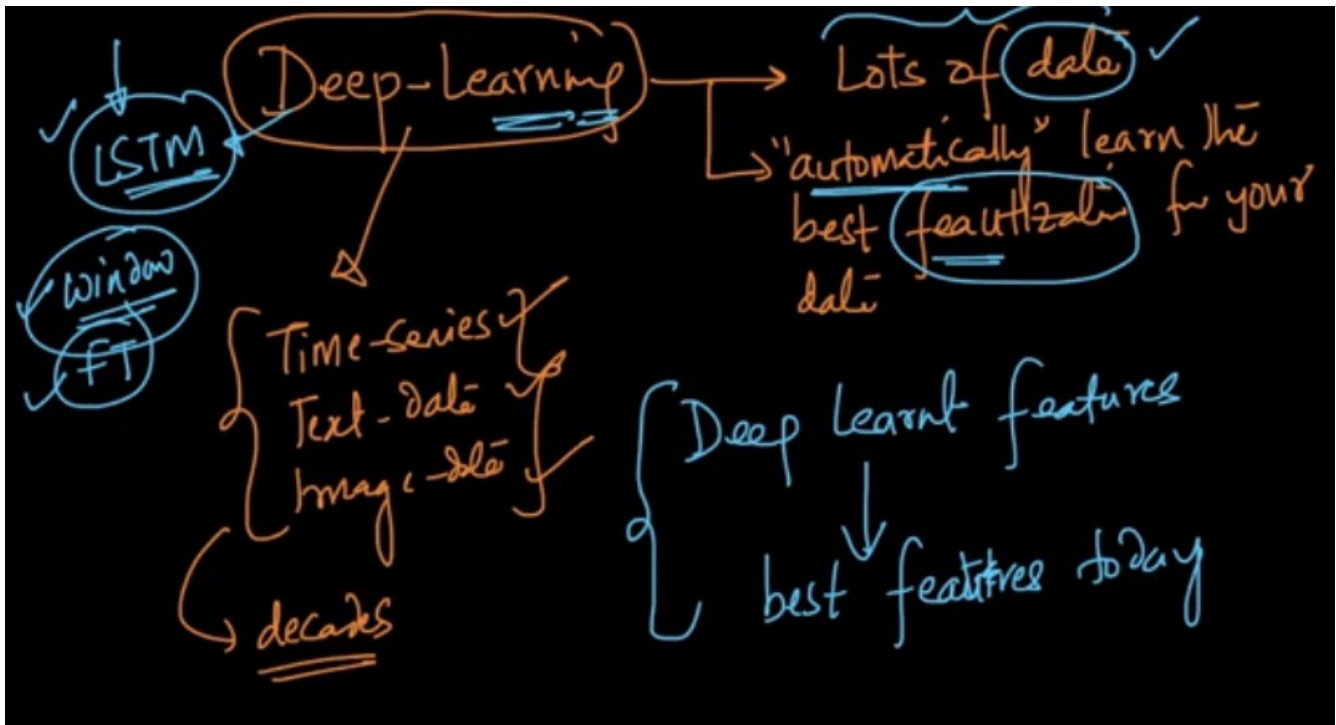 Deep-Learning
Lots of data
"automatically" learn the
best featurization for your
data
LSTM
window
FT
Time-series
Text-data
Image-data
decades
Deep Learnt features
best features today